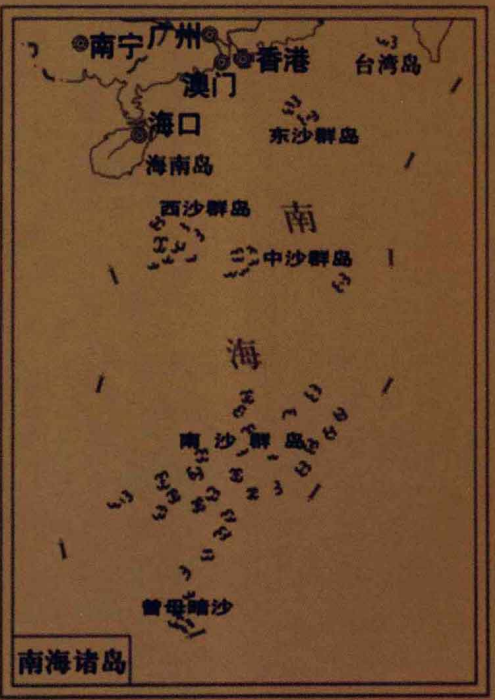 南宁
广州
香港
澳门
台湾岛
海口
东沙群岛
海南岛
西沙群岛
南
中沙群岛
海
南沙群岛
曾母暗沙
南海诸岛